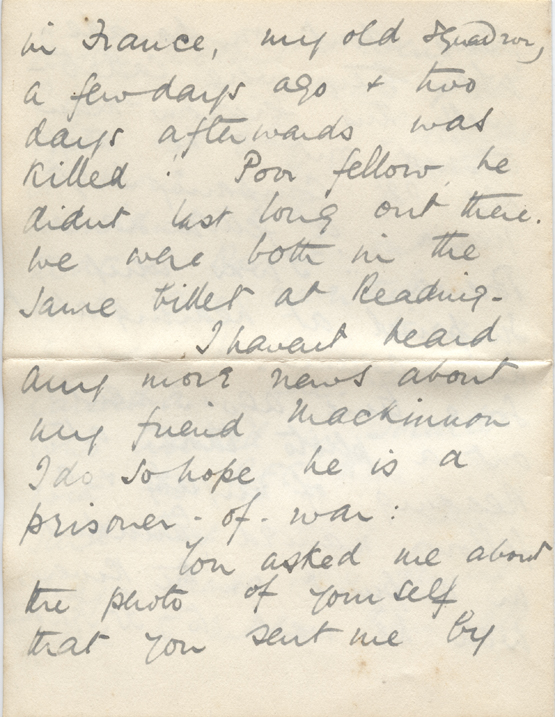 in France, my old Squadron,
a few days ago & two
days afterwards was
killed! Poor fellow he
didnt last long out there.
We were both in the
same billet at Reading.
I havent heard
any more news about
my friend Mackinnon
I do so hope he is a
prisoner-of-war:
You asked me about
the photo of yourself
that you sent me by